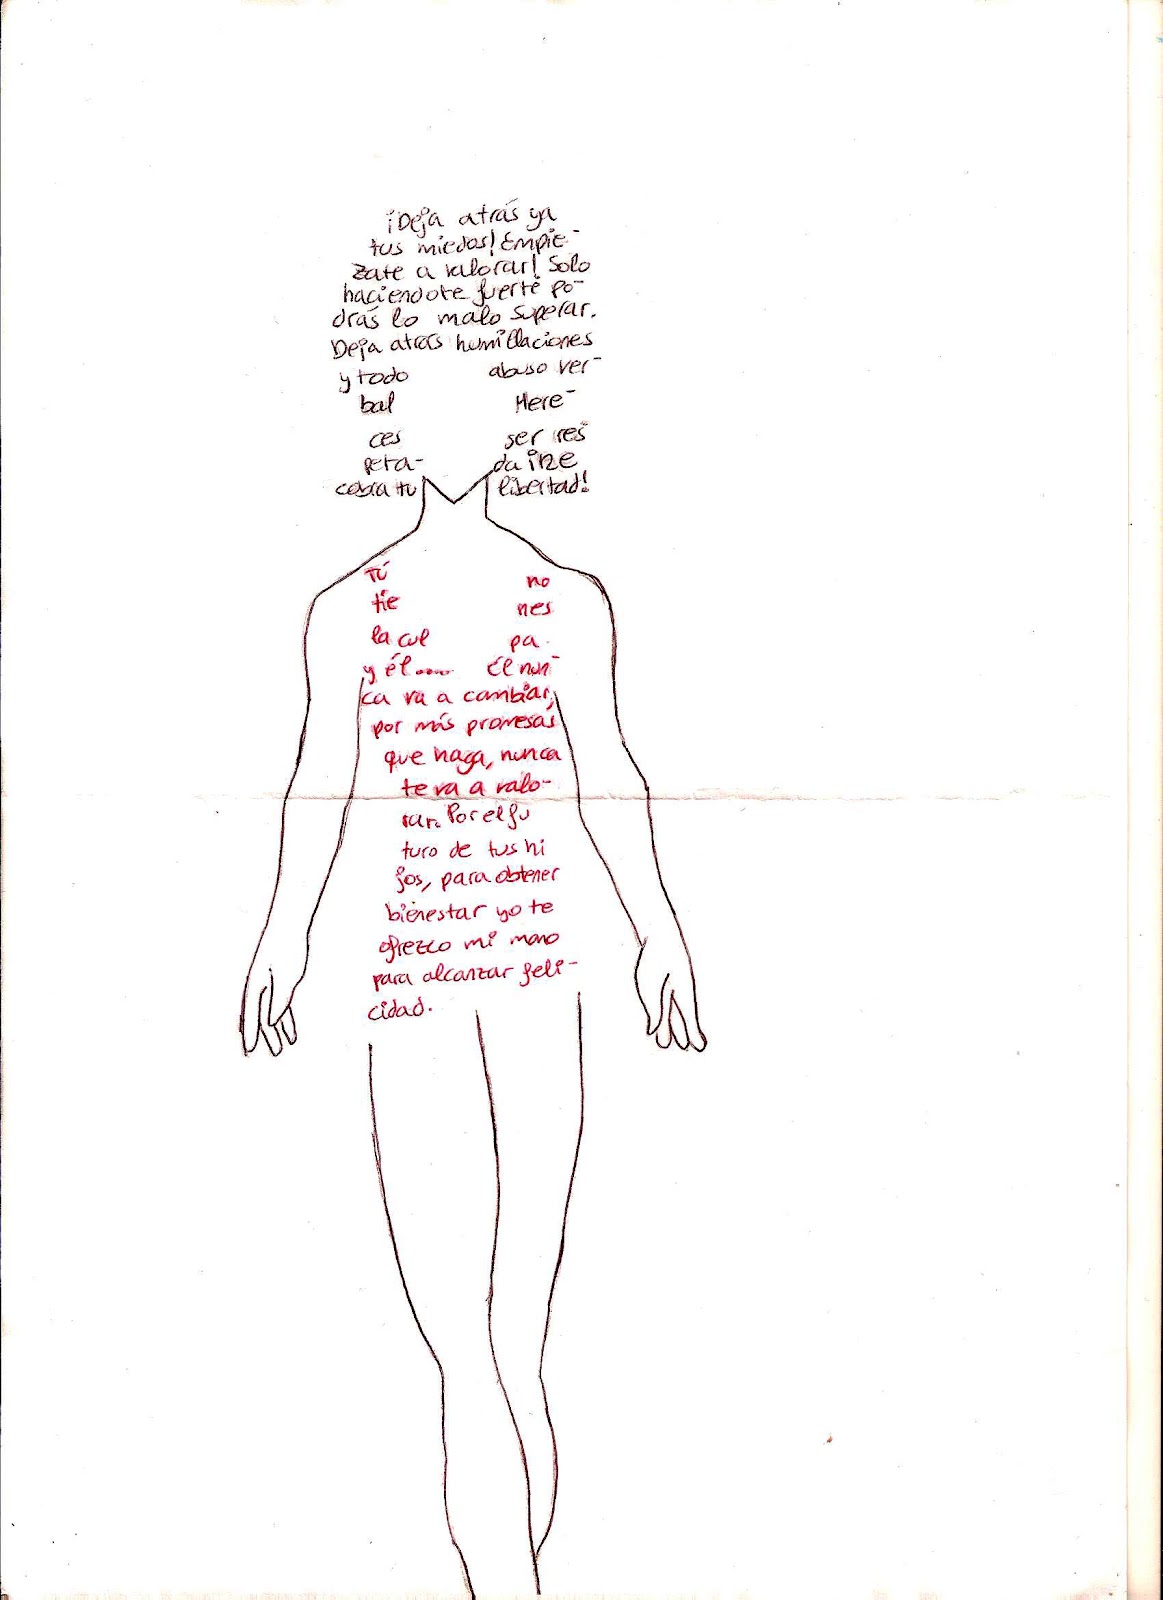 ¡Deja atrás ya
tus miedos! Empie-
zate a valorar! Solo
haciendote fuerte po-
drás lo malo superar.
Deja atrás humillaciones
y todo abuso ver-
bal Mere-
ces ser res
peta- da
cobra tu libertad!
Tú no
tie nes
la cul pa.
y él.... Él nun-
ca va a cambiar,
por más promesas
que haga, nunca
te va a valo-
rar. Por el fu
turo de tus hi
jos, para obtener
bienestar yo te
ofrezco mi mano
para alcanzar feli-
cidad.